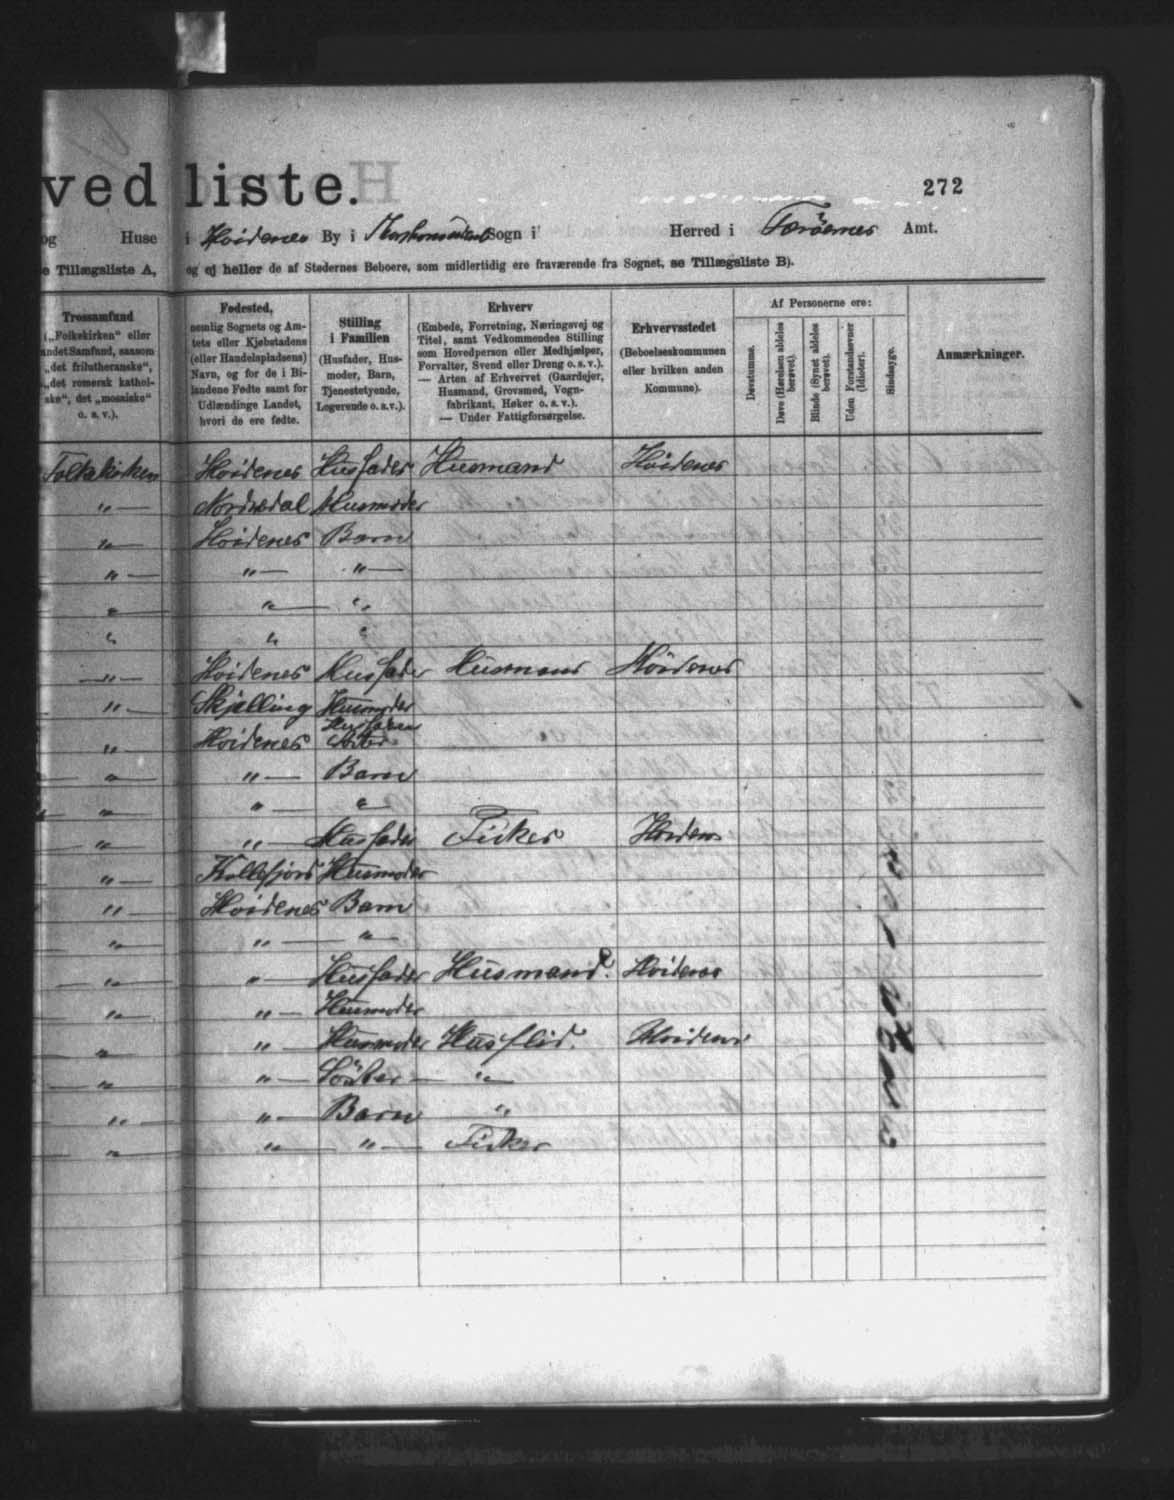 ved liste.
272
og Huse i Hoidenes By i Sogn i Herred i Færöernes Amt.
e Tillægsliste A, og ej heller de af Stedernes Beboere, som midlertidig ere fraværende fra Sognet, se Tillægsliste B).
Trossamfund
(„Folkekirken" eller
andet Samfund, saasom
„det frilutheranske",
„det romersk kathol-
ske", det „mosaiske"
o. s. v.).
Fødested,
nemlig Sognets og Am-
tets eller Kjøbstadens
(eller Handelspladsens)
Navn, og for de i Bi-
landene Fødte samt for
Udlændinge Landet,
hvori de ere fødte.
Stilling
i Familien
(Husfader, Hus-
moder, Barn,
Tjenestetyende,
Logerende o. s. v.).
Erhverv
(Embede, Forretning, Næringsvej og
Titel, samt Vedkommendes Stilling
som Hovedperson eller Medhjælper,
Forvalter, Svend eller Dreng o. s. v.).
— Arten af Erhvervet (Gaardejer,
Husmand, Grovsmed, Vogn-
fabrikant, Høker o. s. v.).
— Under Fattigforsørgelse.
Erhvervsstedet
(Beboelseskommunen
eller hvilken anden
Kommune).
Af Personerne ere:
Døvstumme.
Døve (Hørelsen aldeles
berøvet).
Blinde (Synet aldeles
berøvet).
Uden Forstandsevner
(Idioter).
Sindssyge.
Anmærkninger.
Folkekirken Hoidenes Husfader Husmand Hoidenes
" — Nordredal Husmoder
" — Hoidenes Barn
" — " — " —
" — " — "
" " "
" — Hoidenes Husfader Husmand Hoidenes
" — Skjælling Husmoder
" Hoidenes Husfaderens Söster
" — " — Barn
" — " — "
" — " — Husfader Fisker Hoidenes
" — Kollefjord Husmoder
" — Hoidenes Barn
" — " — "
" — " — Husfader Husmand. Hoidenes
" — " — Husmoder
" — " — Husmoder Husflid. Hoidenes
" — " — Söster — " —
" — " — Barn "
" — " — " — Fisker